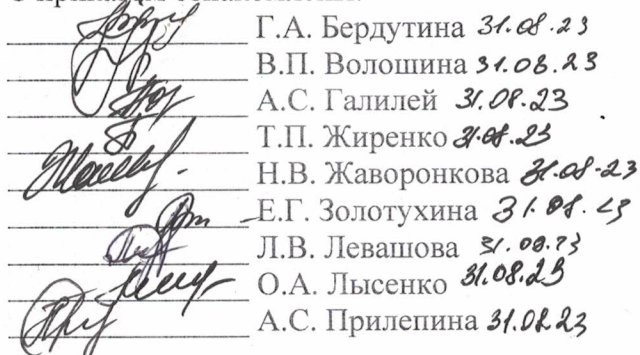 Г.А. Бердутина 31.08.23
В.П. Волошина 31.08.23
А.С. Галилей 31.08.23
Т.П. Жиренко 31.08.23
Н.В. Жаворонкова 31.08.23
Е.Г. Золотухина 31.08.23
Л.В. Левашова 31.08.23
О.А. Лысенко 31.08.23
А.С. Прилепина 31.08.23